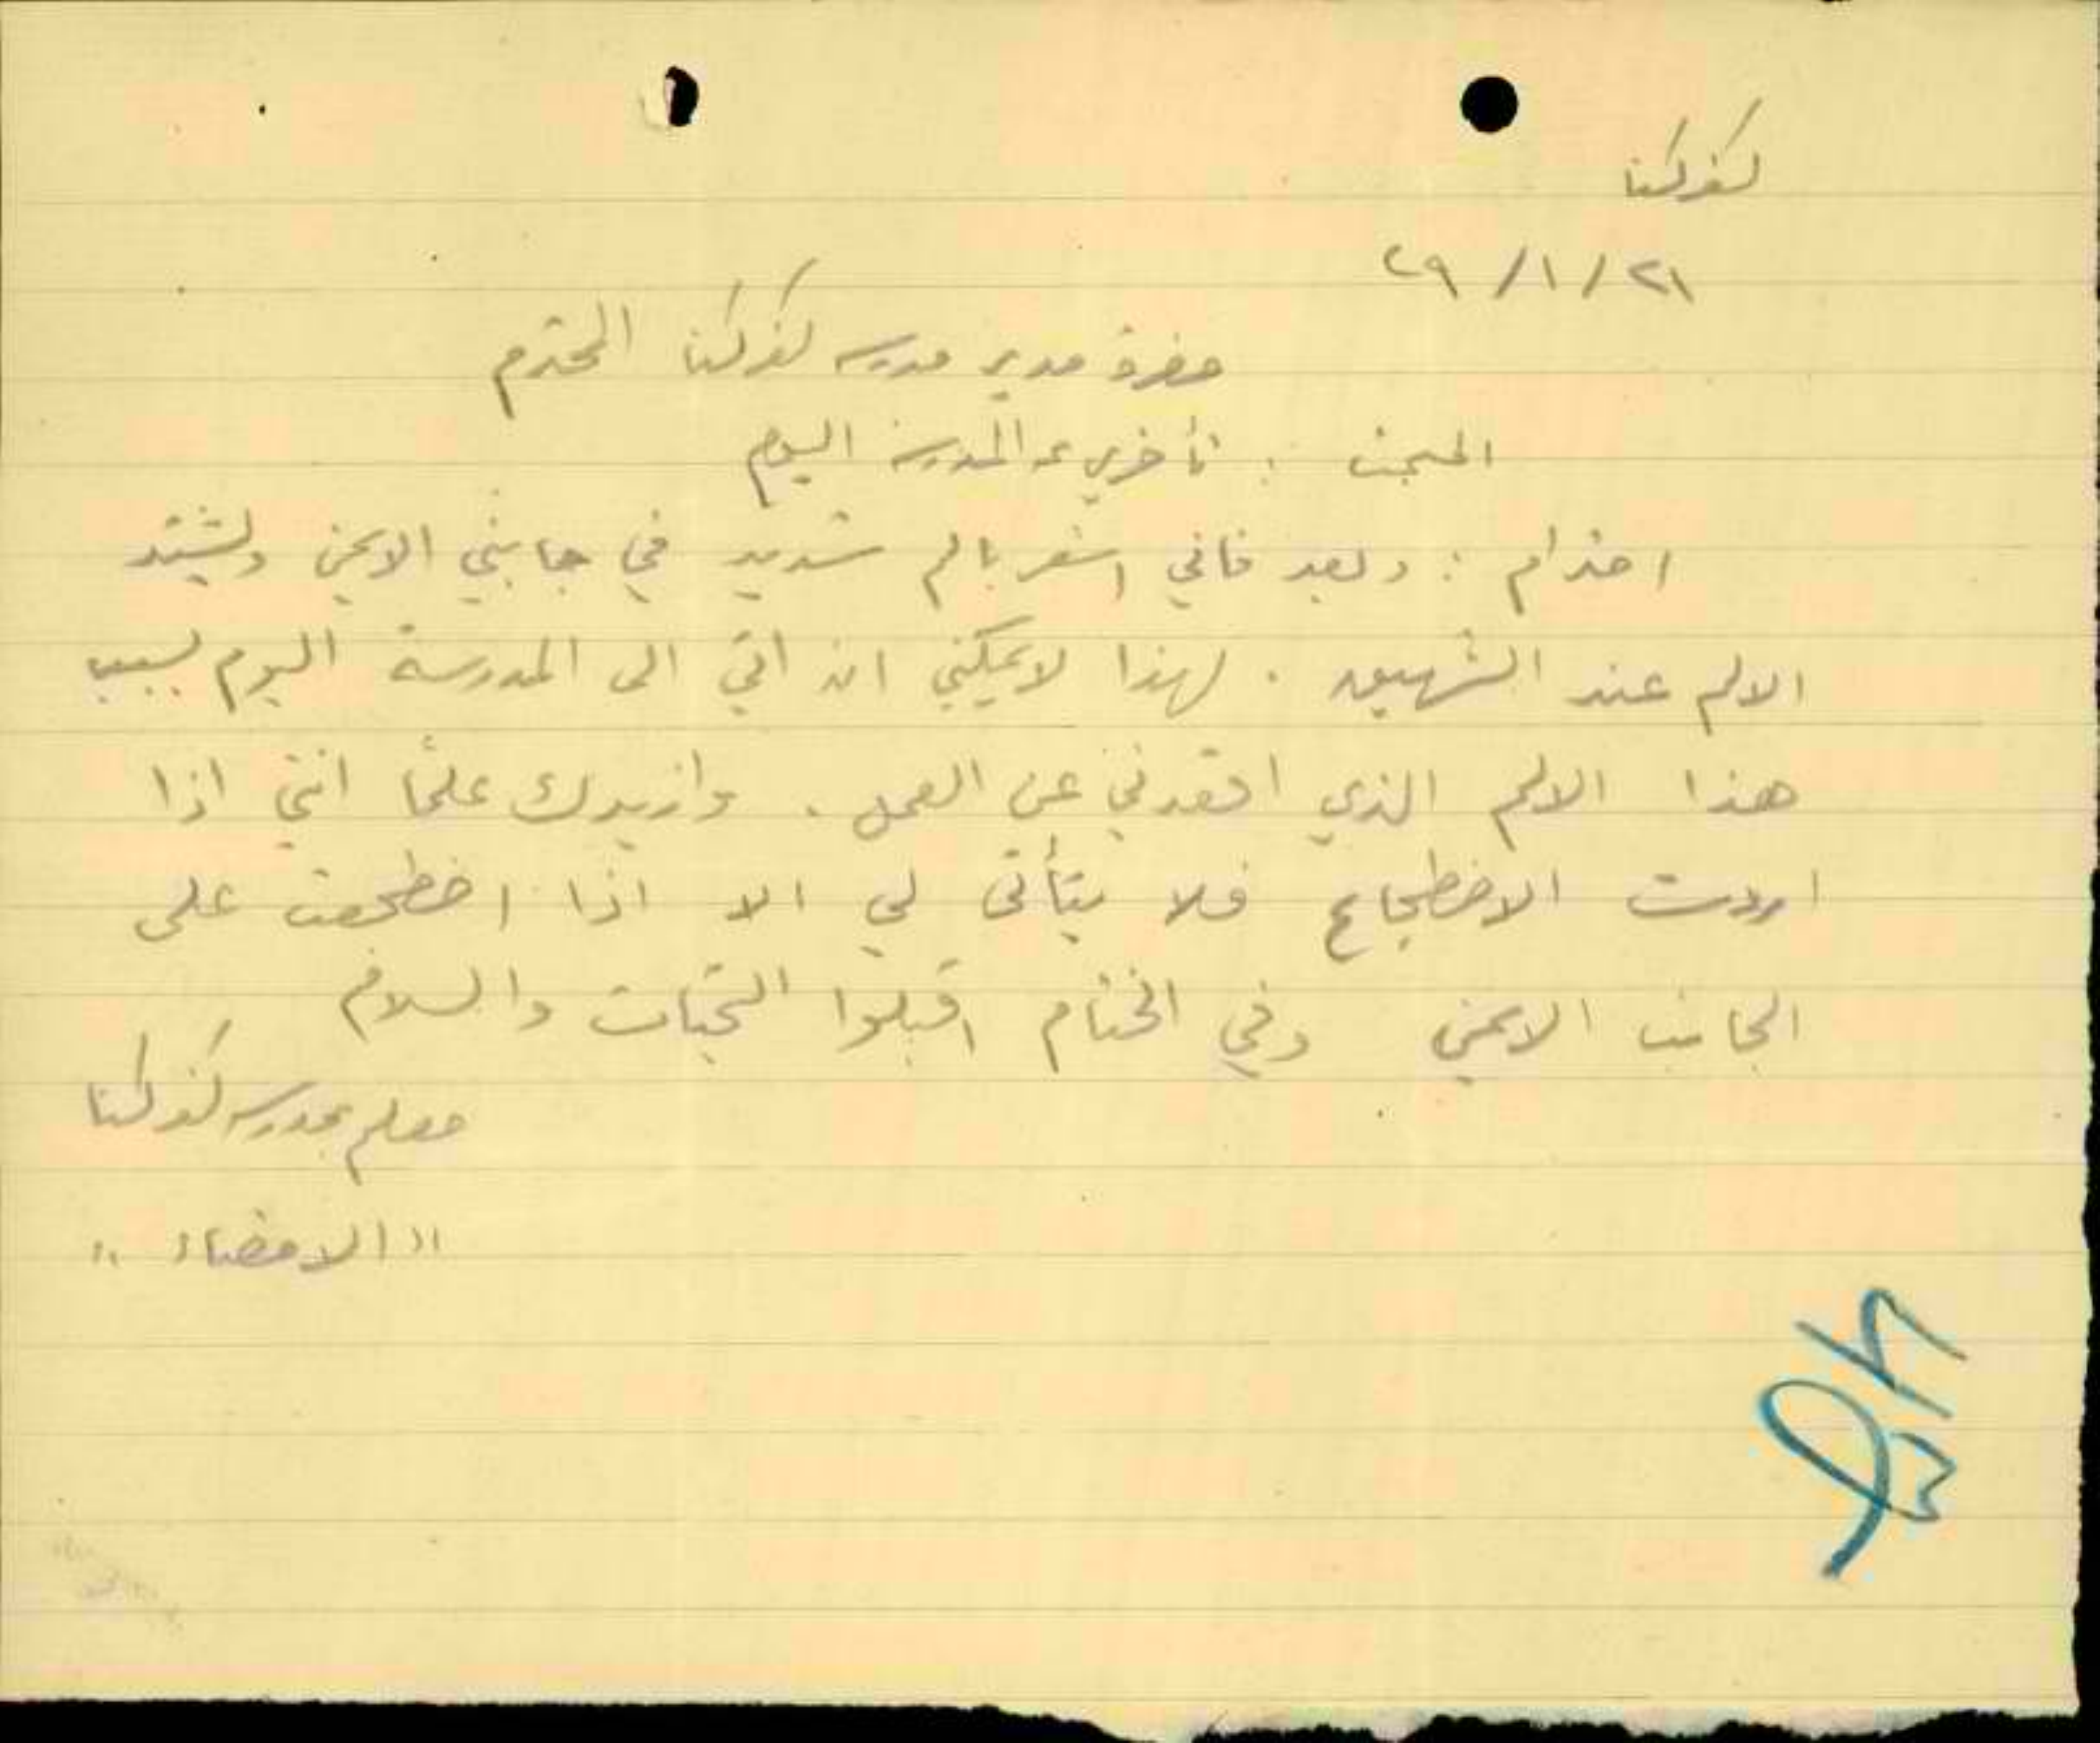 كفركنا
٢١/١/٢٩
حضرة مدير مدرسة كفركنا المحترم
المبحث : تأخري عن المدرسة اليوم
احترام : وبعد فاني اشعر بالم شديد في جانبي الايمن ويشتد
الالم عند الشهيق . لهذا لا يمكنني ان اتي الى المدرسة اليوم بسبب
هذا الالم الذي اقعدني عن العمل . وازيدك علماً انني اذا
اردت الاضطجاع فلا يتأتى لي الا اذا اضطجعت على
الجانب الايمن وفي الختام اقبلوا التحيات والسلام
معلم بمدرسة كفركنا
"الامضاء"